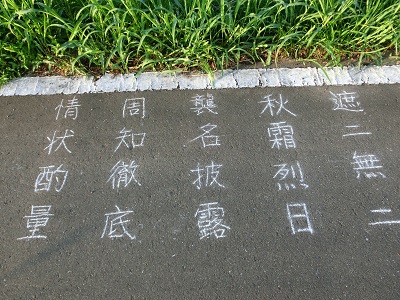 遮二無二
秋霜烈日
襲名披露
周知徹底
情状酌量